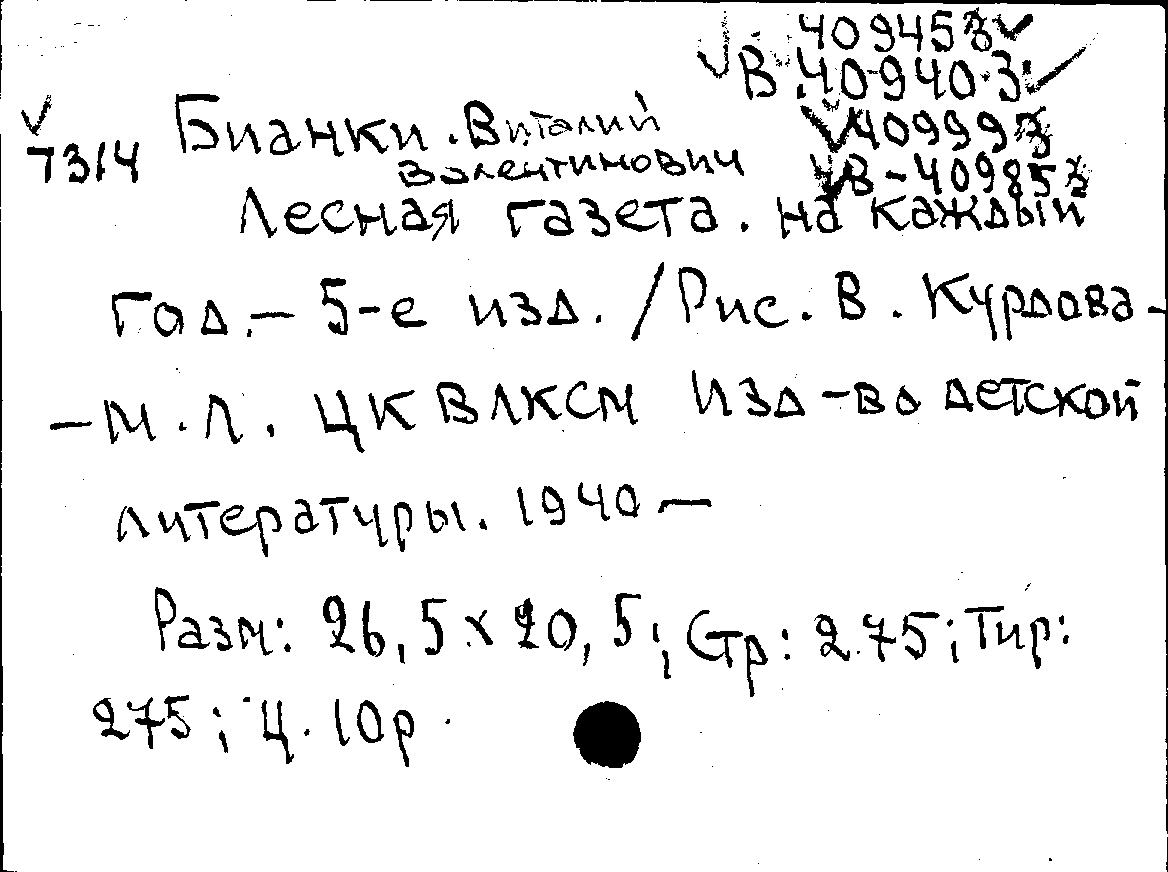 40945з
В.40940з
409993
В-40985з
7314 Бианки. Виталий
Валентинович
Лесная газета. на каждый
год.— 5-е изд. /Рис. В. Курдова-
—М.Л. ЦК ВЛКСМ Изд-во детской
литературы. 1940—
Разм: 26,5х20,5; Стр: 275; Тир:
275; Ц. 10р.